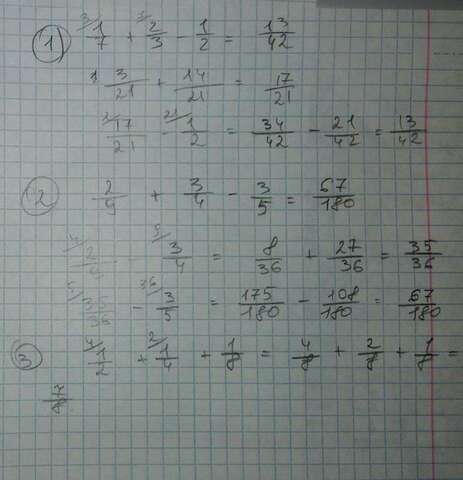 1) ³⁄1/7 + ⁷⁄2/3 - 1/2 = 13/42
3/21 + 14/21 = 17/21
²⁄17/21 ²¹⁄1/2 = 34/42 - 21/42 = 13/42
2) 2/9 + 3/4 - 3/5 = 67/180
⁴⁄2/9 - ⁹⁄3/4 = 8/36 + 27/36 = 35/36
⁵⁄35/36 - ³⁶⁄3/5 = 175/180 - 108/180 = 67/180
3) ⁴⁄1/2 + ²⁄1/4 + 1/8 = 4/8 + 2/8 + 1/8 =
7/8